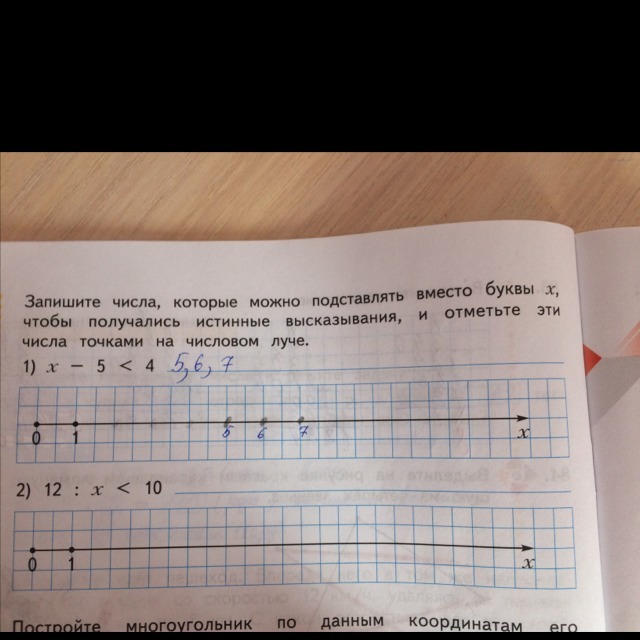 Запишите числа, которые можно подставлять вместо буквы x,
чтобы получались истинные высказывания, и отметьте эти
числа точками на числовом луче.
1) x − 5 < 4 5, 6, 7
0 1 5 6 7 x
2) 12 : x < 10
0 1 x
Постройте многоугольник по данным координатам его